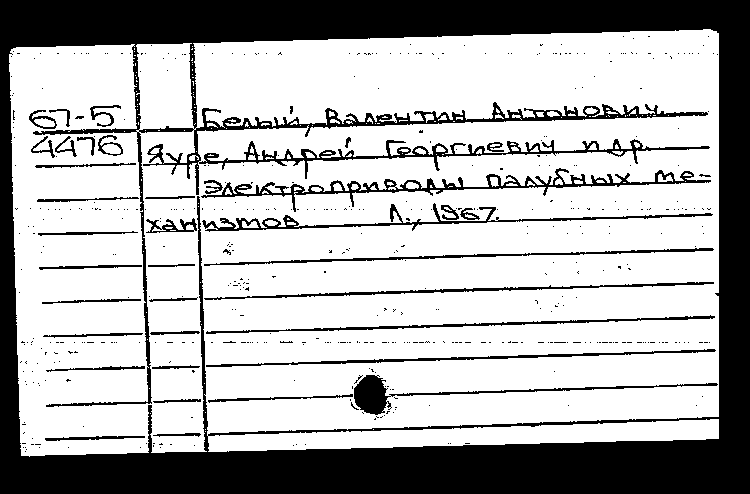 67-5 Белый, Валентин Антонович.
4476 Яуре, Андрей Георгиевич и др.
Электроприводы палубных ме-
ханизмов Л., 1967.